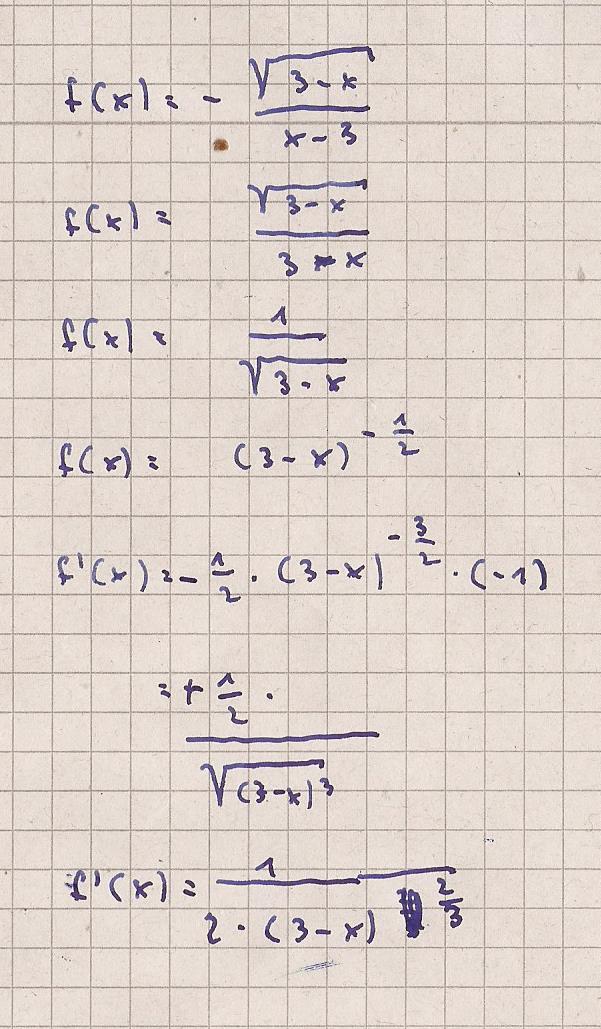 f(x) = - √(3-x) / (x-3)
f(x) = √(3-x) / (3-x)
f(x) = 1 / √(3-x)
f(x) = (3-x)^(-1/2)
f'(x) = - 1/2 · (3-x)^(-3/2) · (-1)
= + 1/2 · / √(3-x)^3
f'(x) = 1 / 2·(3-x)^(2/3)